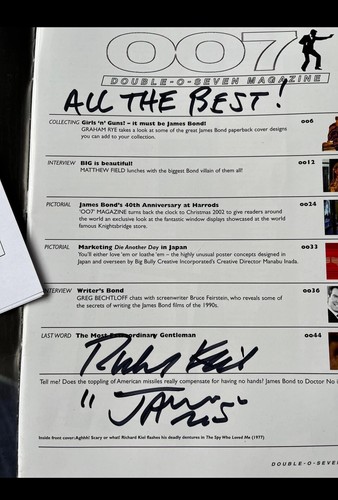 007
DOUBLE-O-SEVEN MAGAZINE
ALL THE BEST!
COLLECTING Girls 'n' Guns! – it must be James Bond! 006
GRAHAM RYE takes a look at some of the great James Bond paperback cover designs
you can add to your collection.
INTERVIEW BIG is beautiful! 0012
MATTHEW FIELD lunches with the biggest Bond villain of them all!
PICTORIAL James Bond's 40th Anniversary at Harrods 0024
'007' MAGAZINE turns back the clock to Christmas 2002 to give readers around
the world an exclusive look at the fantastic window displays showcased at the world
famous Knightsbridge store.
PICTORIAL Marketing Die Another Day in Japan 0033
You'll either love 'em or loathe 'em – the highly unusual poster concepts designed in
Japan and overseen by Big Bully Creative Incorporated's Creative Director Manabu Inada.
INTERVIEW Writer's Bond 0036
GREG BECHTLOFF chats with screenwriter Bruce Feirstein, who reveals some of
the secrets of writing the James Bond films of the 1990s.
LAST WORD The Most Extraordinary Gentleman 0044
Richard Kiel
Tell me? Does the toppling of American missiles really compensate for having no hands? James Bond to Doctor No i
"JAWS"
Inside front cover: Aghhh! Scary or what! Richard Kiel flashes his deadly dentures in The Spy Who Loved Me (1977)
DOUBLE-O-SEVE